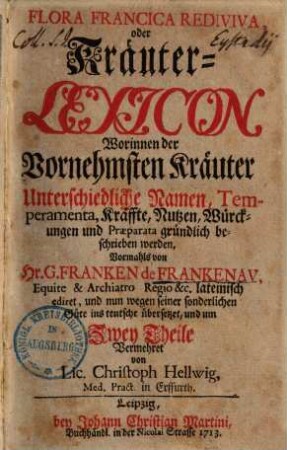 FLORA FRANCICA REDIVIVA,
oder
Kräuter-
LEXICON
Worinnen der
Vornehmsten Kräuter
Unterschiedliche Namen, Tem-
peramenta, Kräffte, Nutzen, Würck-
ungen und Præparata gründlich be-
schrieben werden,
Vormahls von
Hr. G. FRANKEN de FRANKENAV,
Equite & Archiatro Regio &c. lateinisch
ediret, und nun wegen seiner sonderlichen
Güte ins teutsche übersetzet, und um
Zwey Theile
Vermehret
von
Lic. Christoph Hellwig,
Med. Pract. in Erffurth.
Leipzig,
bey Johann Christian Martini,
Buchhändl. in der Nicolai Strasse 1713.
AUGSBURG